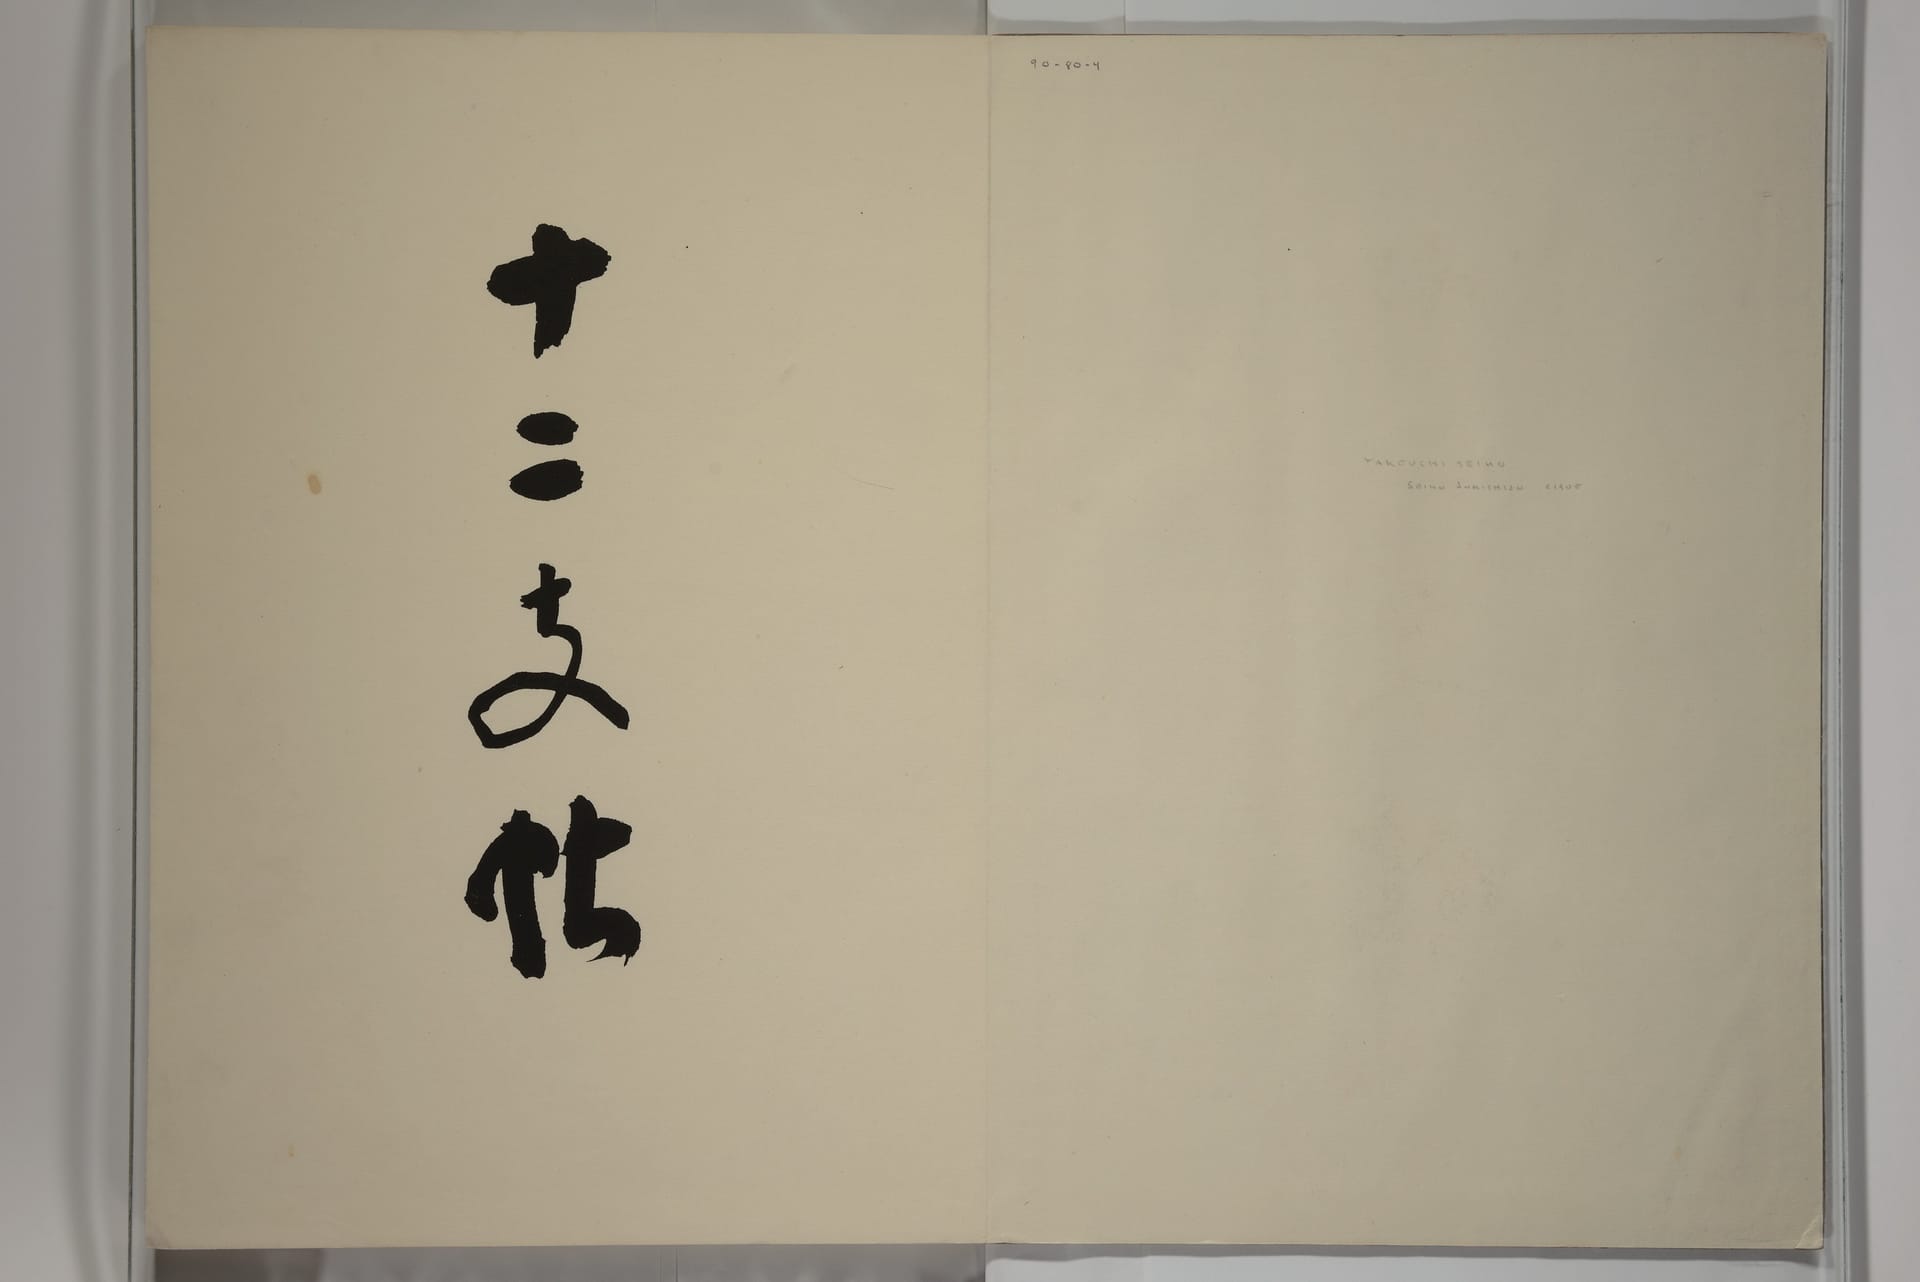 十二支帖
90-80-4
TAKEUCHI SEIHO
SEIHO JUNISHIJO C1905